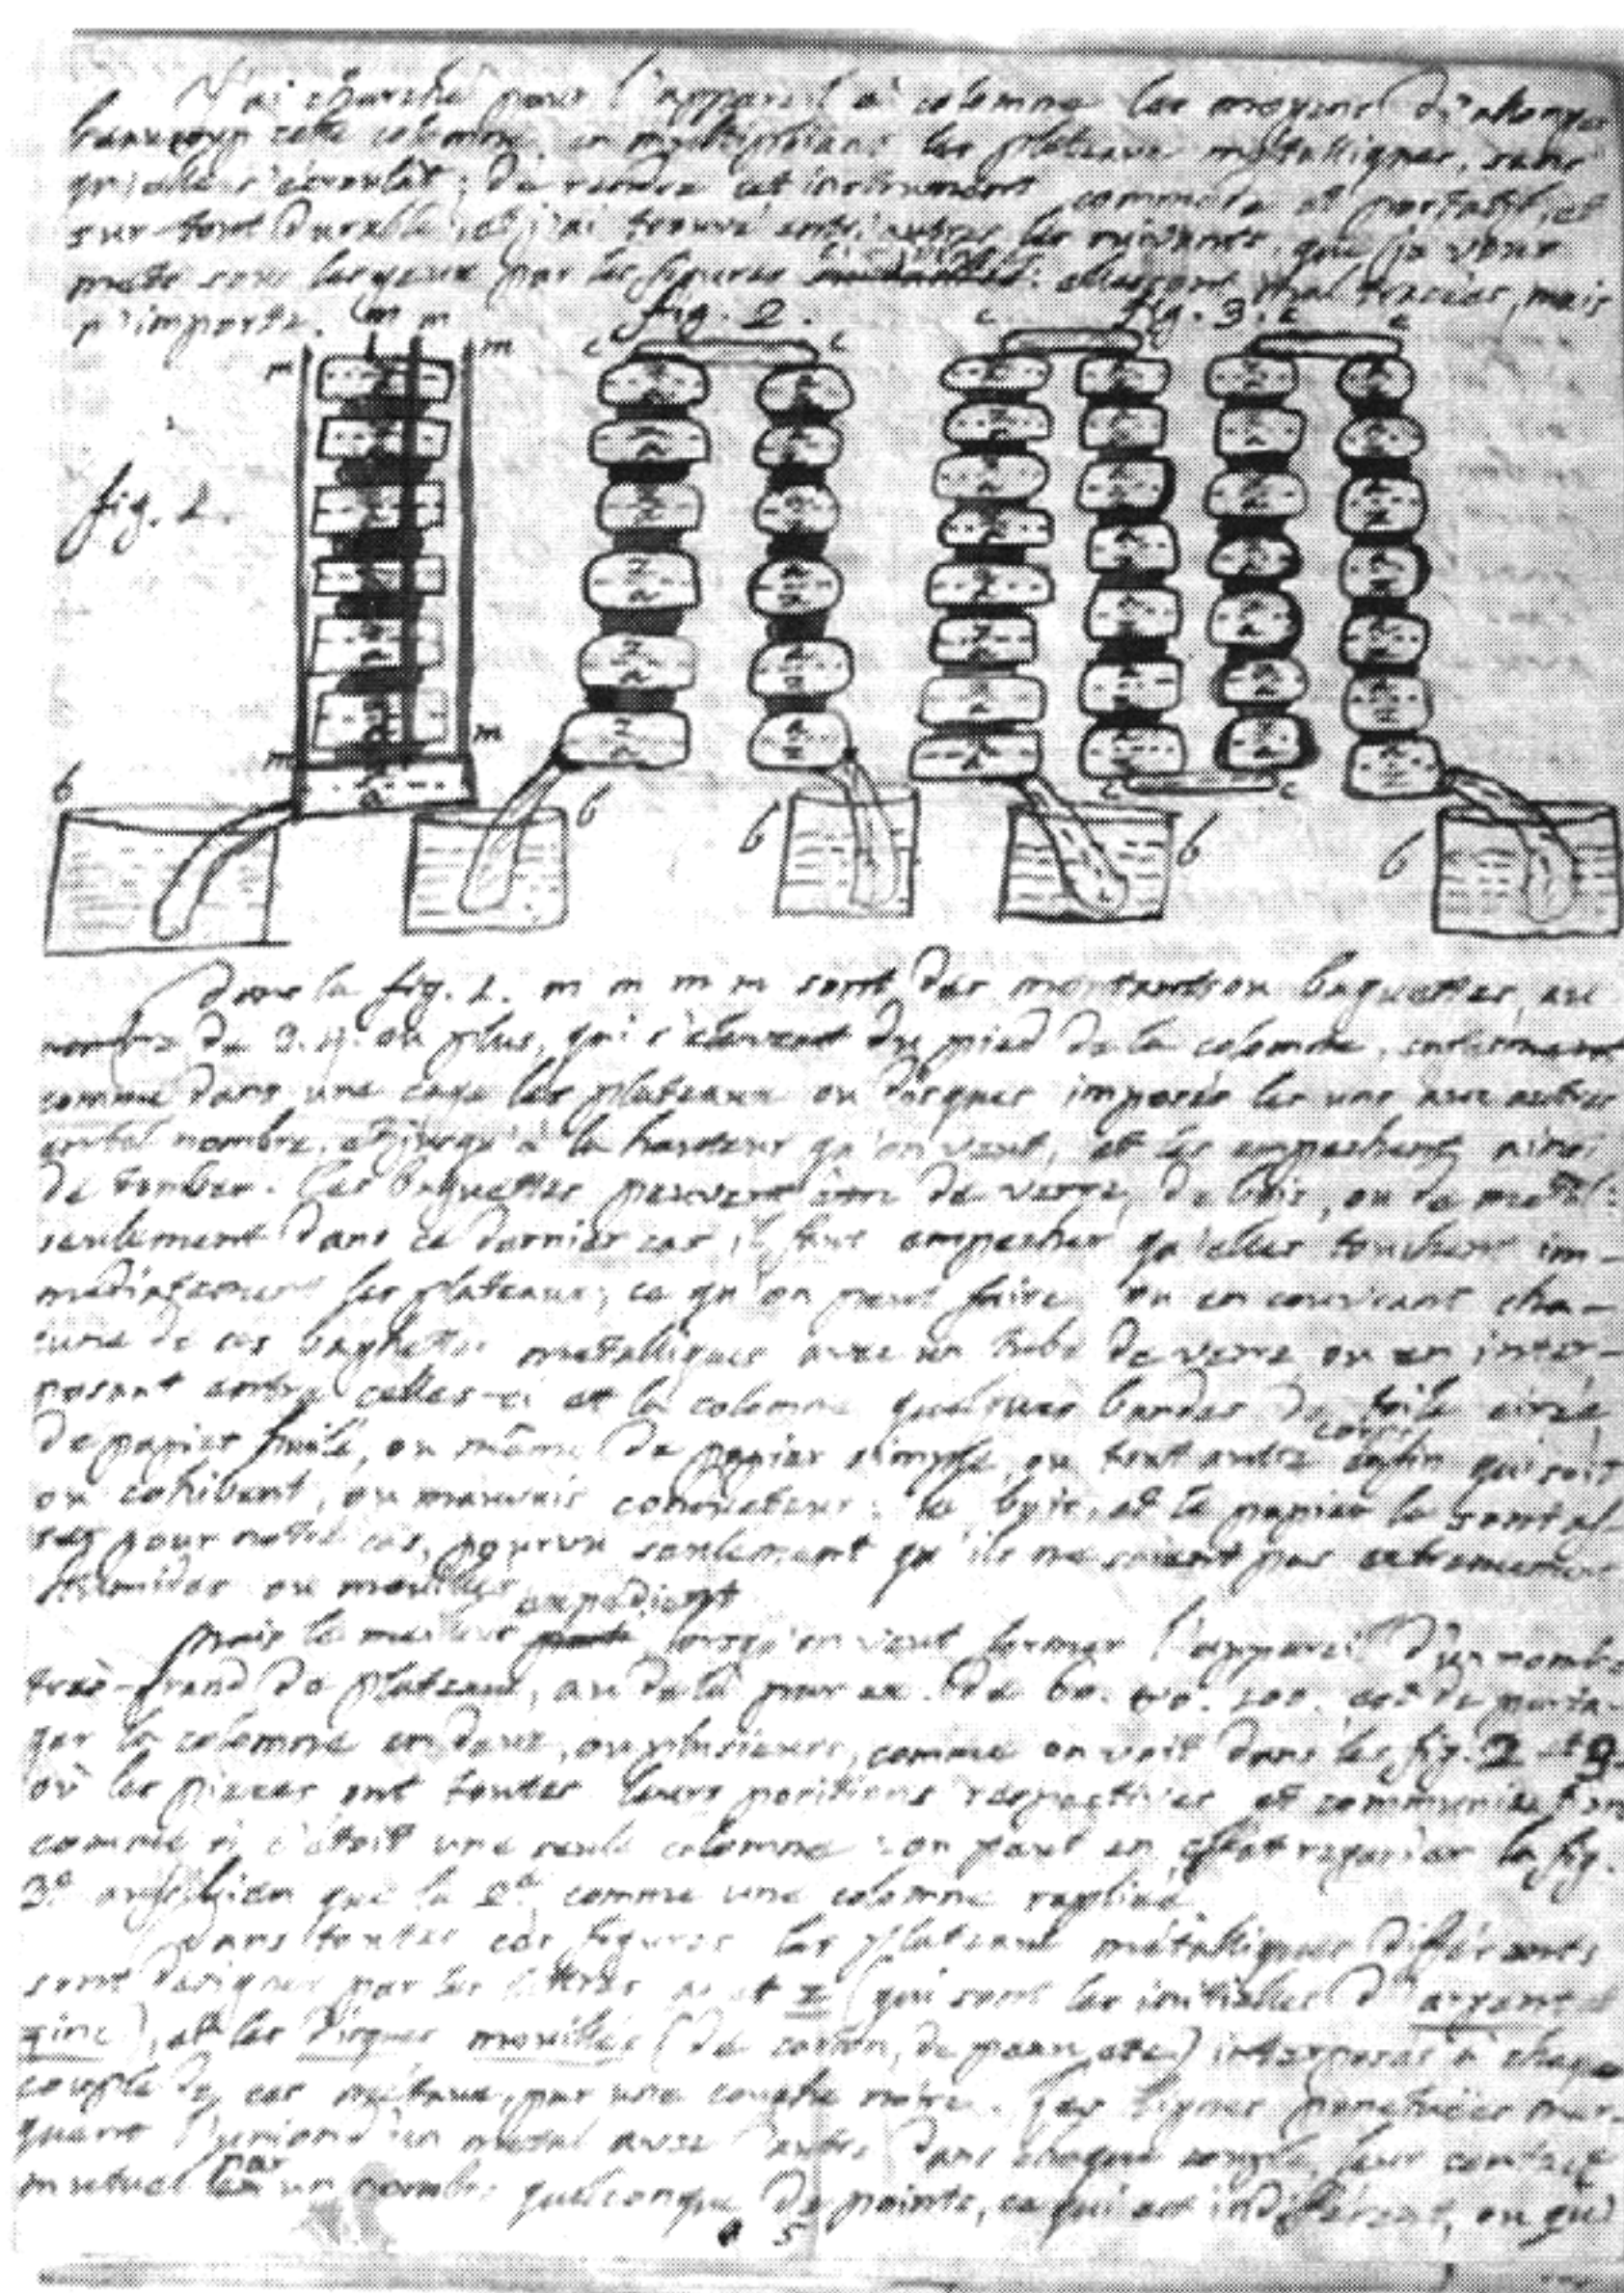 J'ai cherché pour l'appareil à colomne les moyens d'alonger
beaucoup cette colomne, en multipliant les plateaux métalliques, sans
qu'elle s'écroulât; de rendre cet instrument commode et portatif, et
sur-tout durable, et j'ai trouvé entr'autres les suivants, que je vous
mets sous les yeux par les figures : elles sont mal tracées, mais
n'importe.
m m fig. 2. fig. 3.
m m c c c c c
fig. 1.
m m
b b b b b
c c
Dans la fig. 1. m m m m sont des montants ou baguettes, au
nombre de 3. 4. ou plus, qui s'élevent du pied de la colomne, enfermant
comme dans une cage les plateaux ou disques imposés les uns aux autres
en tel nombre, et jusqu'à la hauteur qu'on veut, et les empechent ainsi
de tomber. Les baguettes peuvent être de verre, de bois, ou de metal:
seulement dans ce dernier cas il faut empecher qu'elles touchent im-
mediatement les plateaux; ce qu'on peut faire, ou en couvrant cha-
cune de ces baghettes metalliques avec un tube de verre ou en inter-
posant entre celles-ci et la colomne quelques bandes de toile cirée,
de papier huilé, ou même de papier simple, ou tout autre corps enfin qui soit
ou cohibent, ou mauvais conducteur: le bois, et le papier le sont as-
sez pour notre cas, pourvu seulement qu'ils ne soient pas extremement
humides ou mouillés
expedient
Mais le meilleur lorsqu'on veut former l'appareil d'un nombre
très-grand de plateaux, au delà pour ex. de 60. 100. est de parta-
ger la colomne en deux, ou plusieurs, comme on voit dans les fig. 2 et 3
où les pieces ont toutes leurs positions respectives et communications
comme si c'étoit une seule colomne: on peut en effet regarder la fig.
3e aussi bien que la 2e comme une colomne repliée.
Dans toutes ces figures les plateaux métalliques différents
sont designés par les lettres a et z (qui sont les initielles d'argent
zinc), et les disques mouillés (de carton, de peau, etc) interposés à chaque
couple de ces métaux, par une couche noire. Les lignes ponctuées mar-
quent l'union d'un metal avec l'autre dans chaque couple, leur contact
mutuel par un nombre quelconque de points, ce qui est indifférent, ou qu'
5